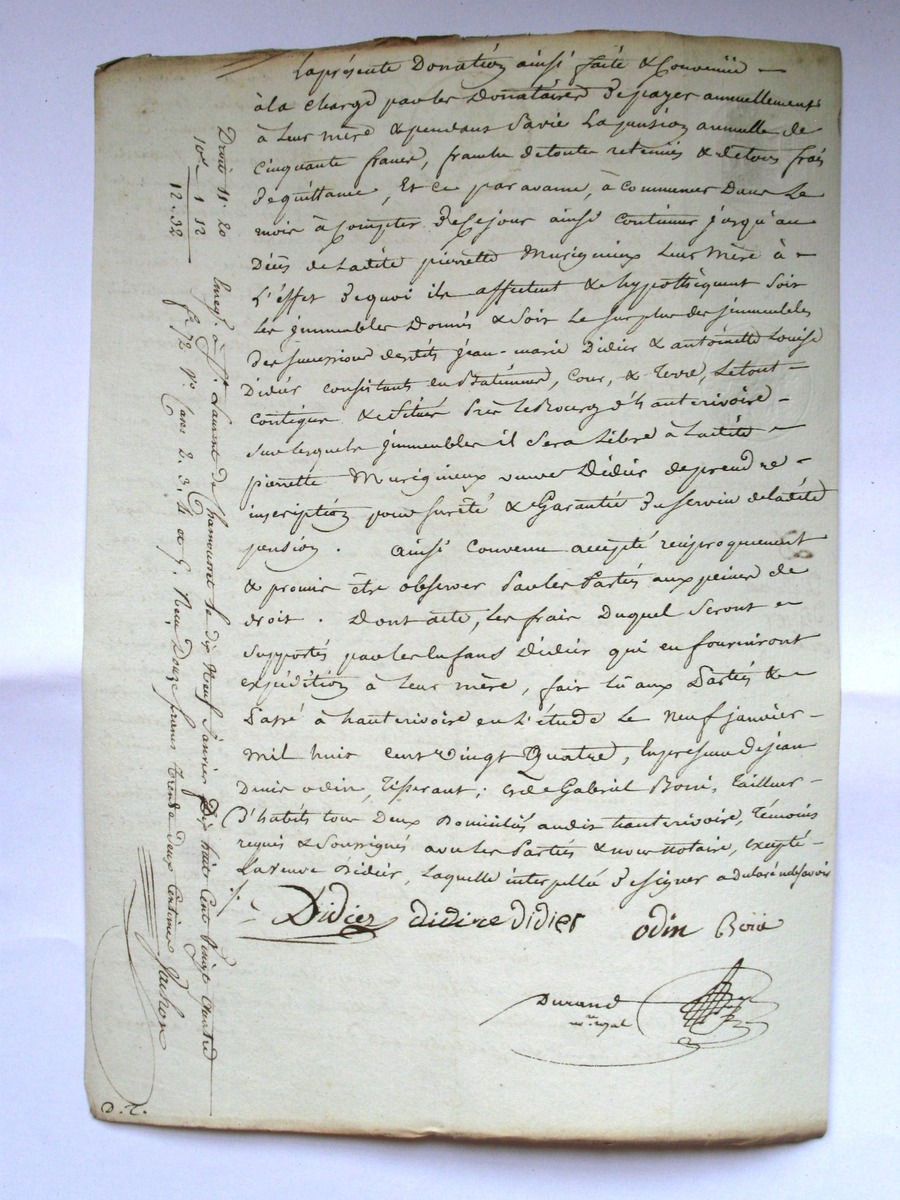 La présente Donation ainsi faite & Convenüe
à la charge par les Donataires de payer annuellement
à Leur mère & pendant Sa vie La pension annuelle de
Cinquante francs, franche de toutes retenues & de tous frais
de quittance, Et ce par avance, à commencer Dans Le
mois à Compter de Ce jour ainsi Continuer jusqu'au
Décès de Ladite pierrette Murigneux Leur Mère à
L'effet de quoi ils affectent & hypothèquent Soit
Les jmmeubles Donnés & Soit Le Surplus des jmmeubles
des Successions desdits Jean-marie Didier & antoinette Louise
Didier Consistants en Batiments, Cour, & Terre, Le tout
Contigue & Situés Près le Bourg d'hauterivoire
Sur lesquels jmmeubles il Sera Libre à Ladite
pierrette Murigneux veuve Didier de prendre
inscription pour Sureté & Garantie du Service de ladite
pension. ainsi Convenu accepté réciproquement
& promis être observer Par les Parties aux peines de
droit. Dont acte, Les frais Duquel Seront
Supportés par les Enfans Didier qui en fourniront
expédition à Leur mère, fait Lû aux Parties &
Passé à hauterivoire en L'étude Le neuf janvier
mil huit Cent vingt Quatre, En présence de jean
Denis odin, Tisserant; & de Gabriel Boni, Tailleur
D'habits tous Deux Domiciliés audit hauterivoire, Témoins
requis & Soussignés avec les Parties & nous Notaire, excepté
La veuve Didier, Laquelle interpellée de signer a déclaré ne Savoir
Didier didier didier odin
Durand
nre royal
Droit 11. 20
10e 1 12
12. 32
Enregt. à St. Laurent de Chamousset le dix Neuf Janvier Dix huit Cent Vingt Quatre
fo 72 vo Cases 2. 3. 4 et 5. Reçu Douze francs Trente deux Centimes
D. T.